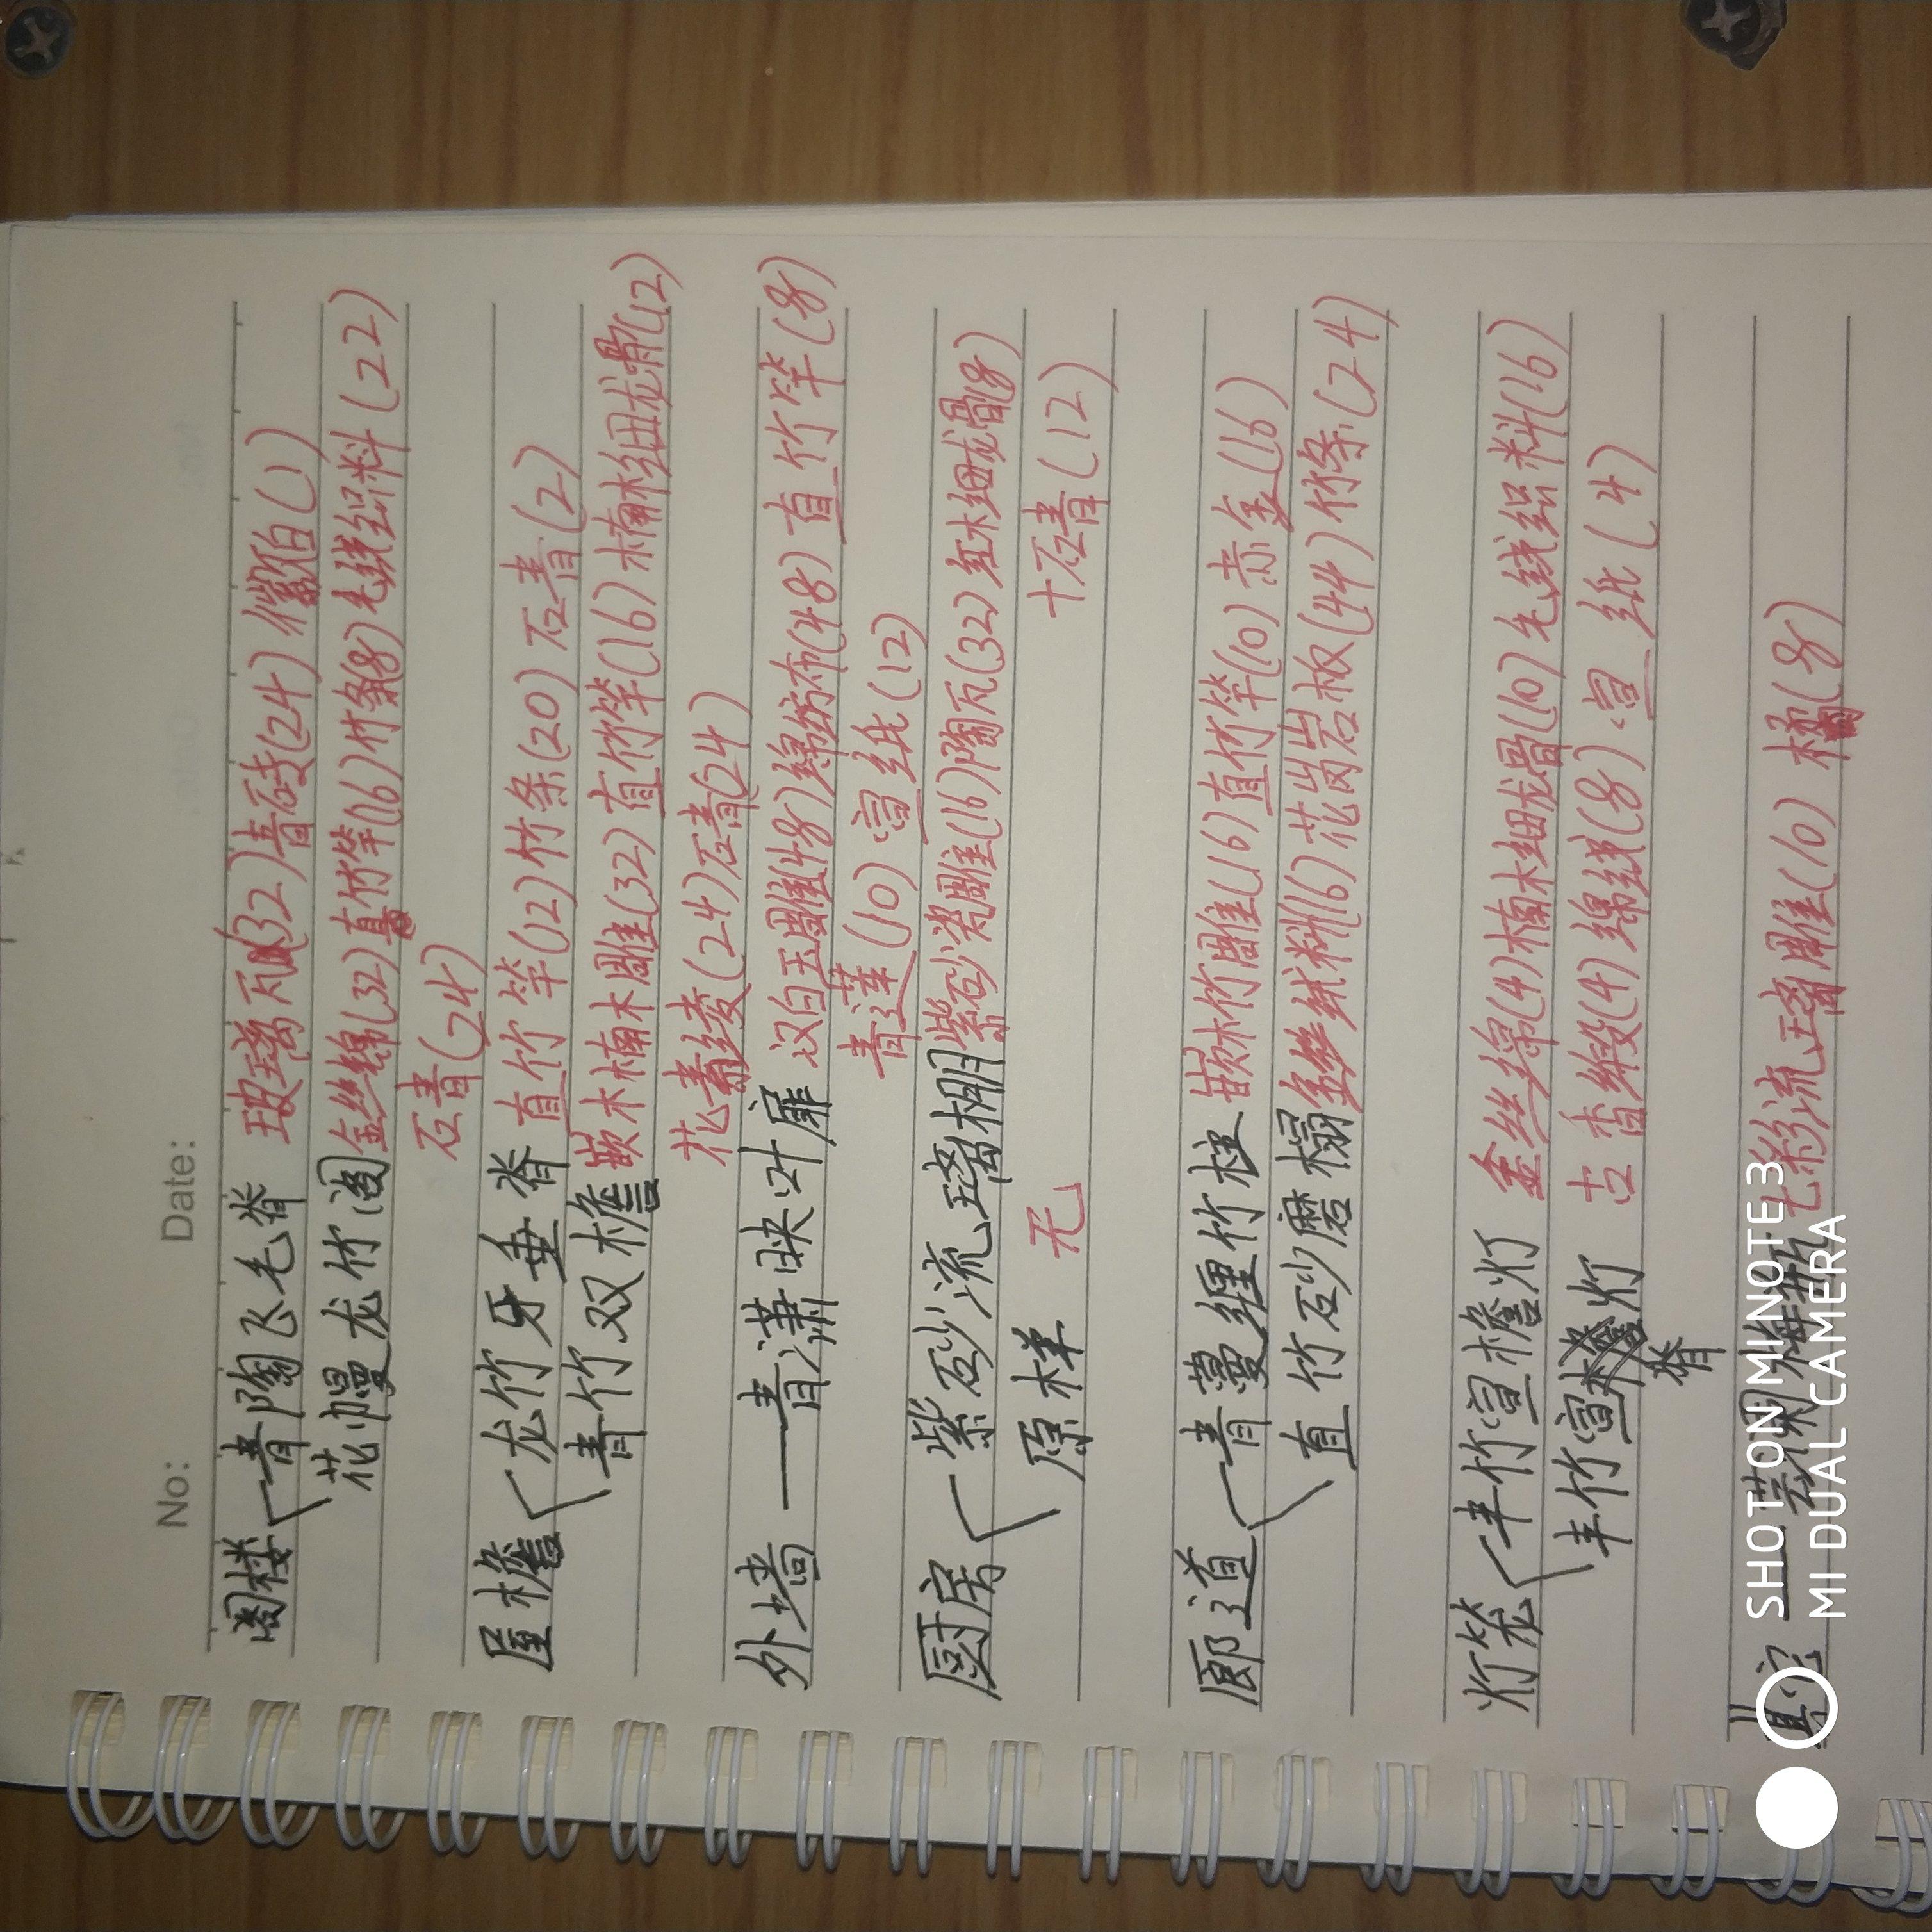 No:
Date:
阁楼 青陶飞毛脊 玻璃瓦(32)青砖(24) 徽铂(1)
花幔龙竹阁 金丝绵(32)直竹竿(16)竹条(8)毛线织料(22)
石青(24)
屋檐 龙竹牙垂脊 直竹竿(12)竹条(20)石青(2)
青竹双檐 嵌木楠木雕(32)直竹竿(16)楠木细龙骨(12)
花青绫(24)石青(24)
外墙 — 青潇映叶扉 汉白玉雕(48)绵纺布(48)直竹竿(8)
青莲(10)宣纸(12)
厨房 紫砂流璃棚 紫砂瓷雕(16)陶瓦(32)红木细龙骨(8)
+石青(12)
原样 无
廊道 青蔓缠竹柱 嵌木竹雕(16)直竹竿(10)赤金(16)
直竹砂磨榻 金丝绒料(6)花岗岩板(44)竹条(24)
灯笼 丰竹宣檐灯 金丝绵(4)楠木细龙骨(10)毛线织料(16)
丰竹宣灯 古香缎(4)绵线(8)宣纸(4)
脊
其它 七彩流璃雕(10) (8)
SHOT ON MI NOTE 3
MI DUAL CAMERA